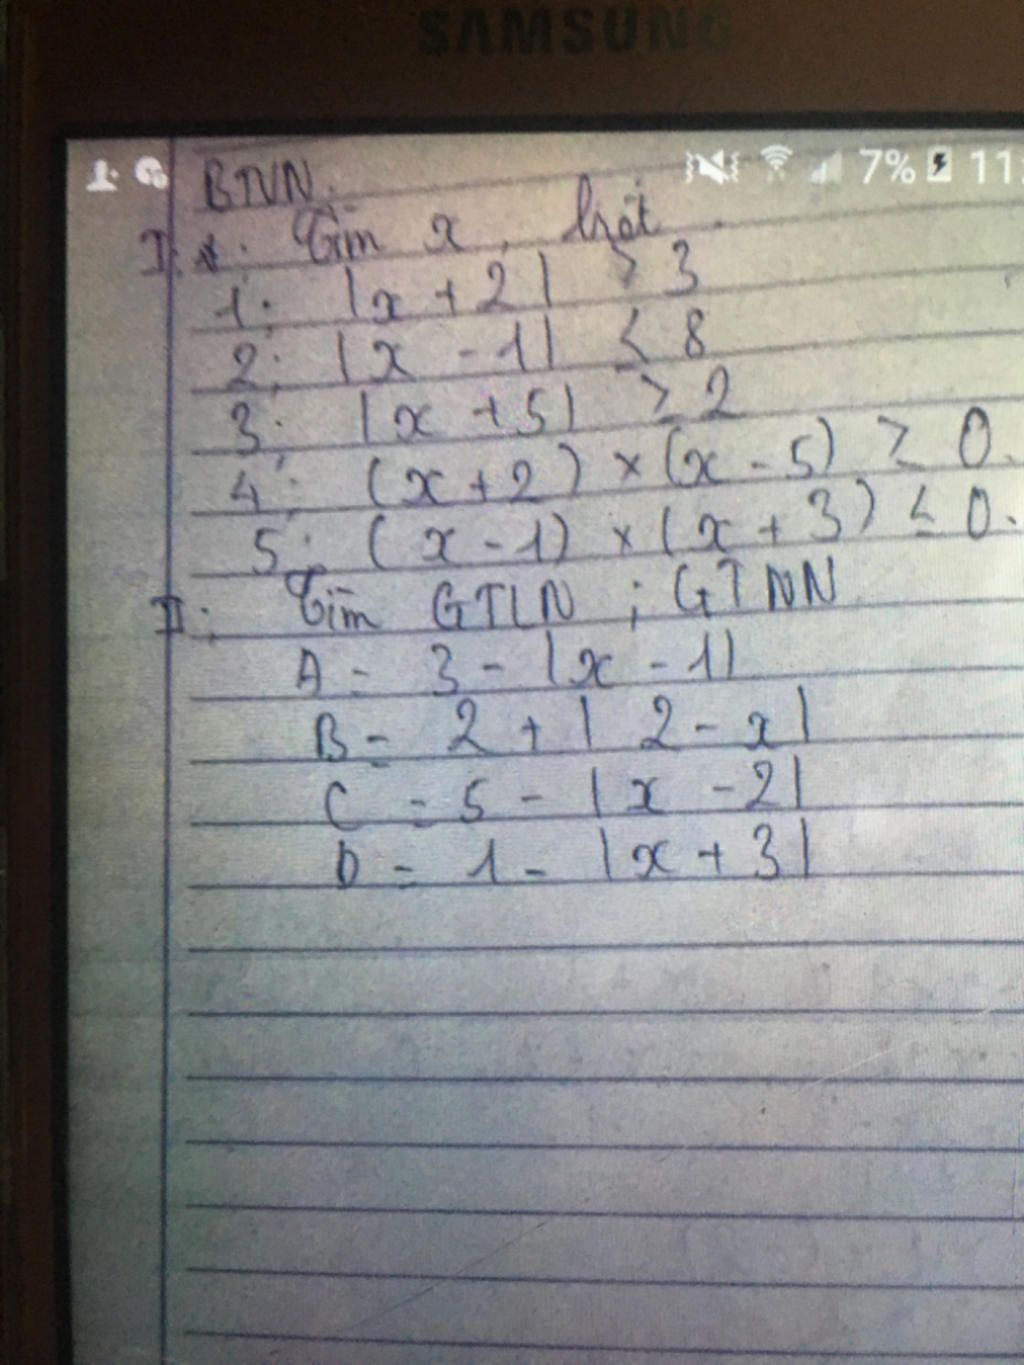 SAMSUNG
7% 11:
BTVN:
I. Tìm x, biết
1: |x + 2| > 3
2: |x - 1| < 8
3: |x + 5| ≥ 2
4: (x + 2) × (x - 5) ≥ 0.
5: (x - 1) × (x + 3) ≤ 0.
II: Tìm GTLN ; GTNN
A = 3 - |x - 1|
B = 2 + | 2 - x|
C = 5 - |x - 2|
D = 1 - |x + 3|